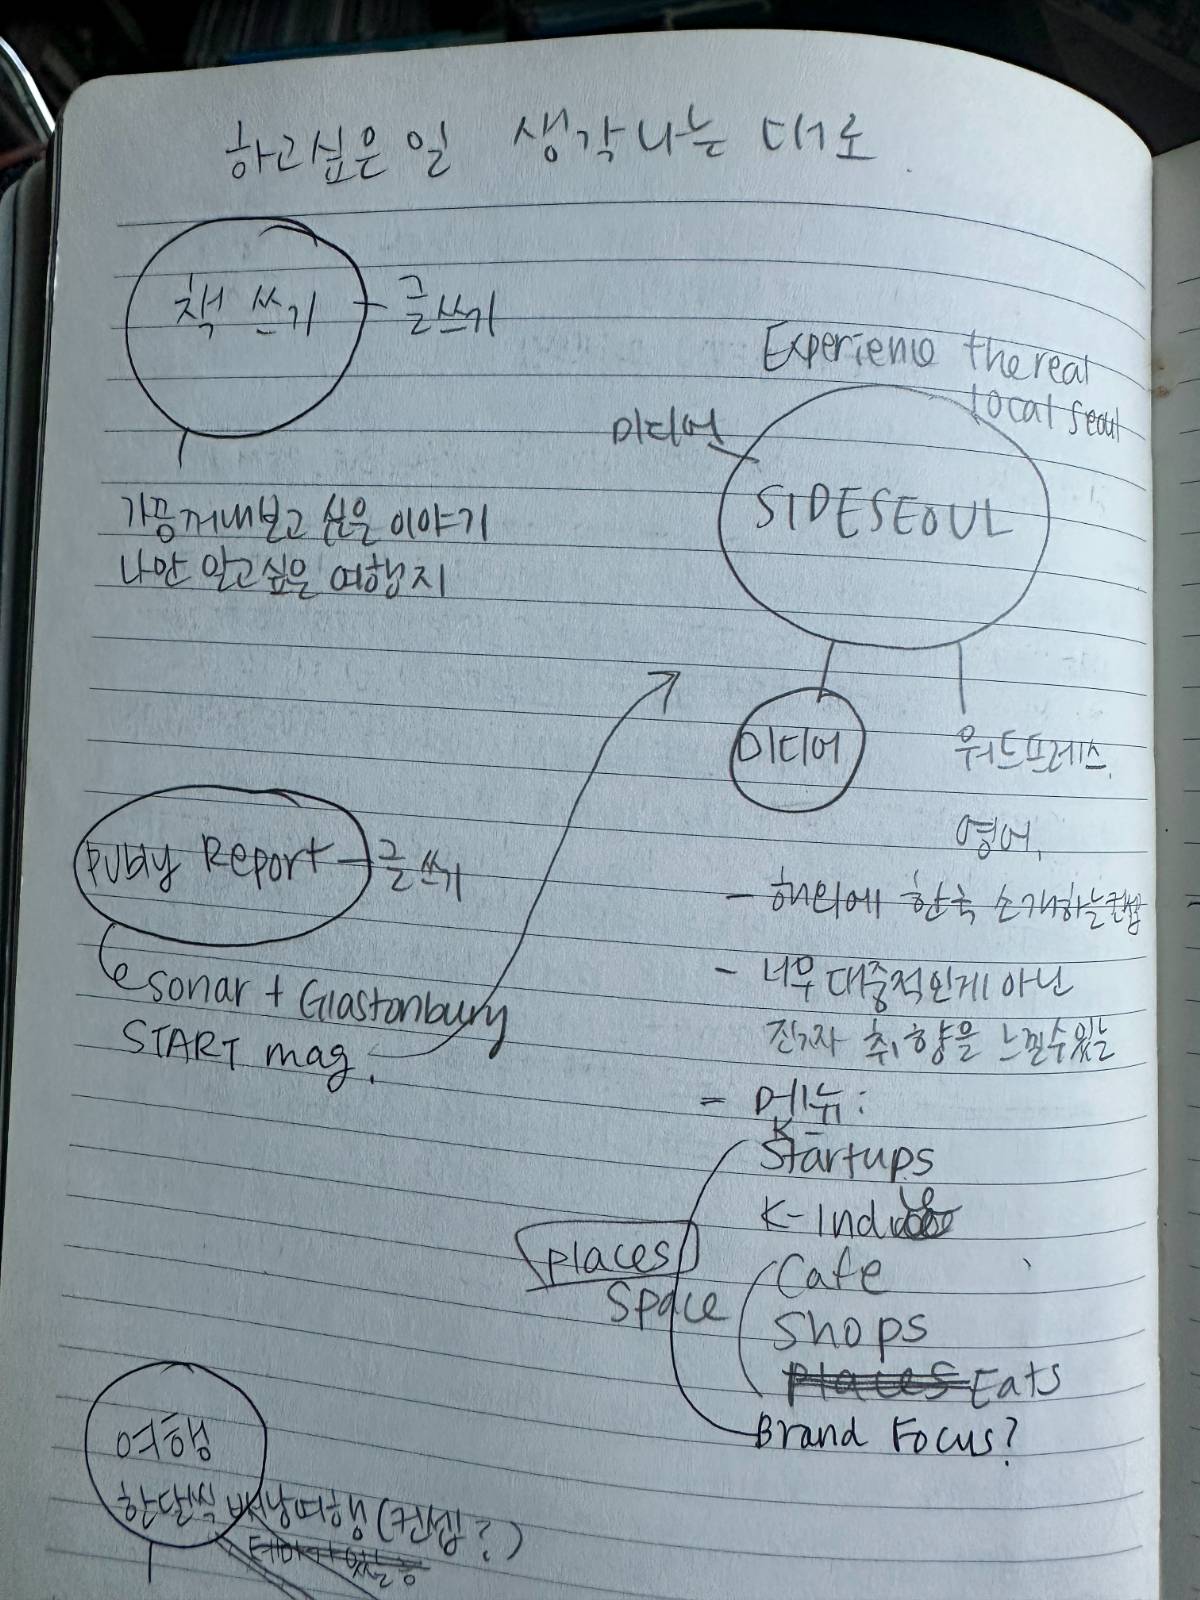 하고싶은 일 생각나는 대로
책 쓰기 - 글쓰기
가끔 꺼내보고 싶은 이야기
나만 알고싶은 여행지
Experience the real
local seoul
미디어
SIDESEOUL
미디어
워드프레스,
영어,
- 해외에 한국 소개하는 컨셉
- 너무 대중적인게 아닌
진짜 취향을 느낄수있는
- 메뉴:
K
Startups
K-Indie
Cafe
Shops
Places Eats
Brand Focus?
places
Space
Publy Report - 글쓰기
sonar + Glastonbury
START mag.
여행
한달씩 배낭여행 (컨셉?)